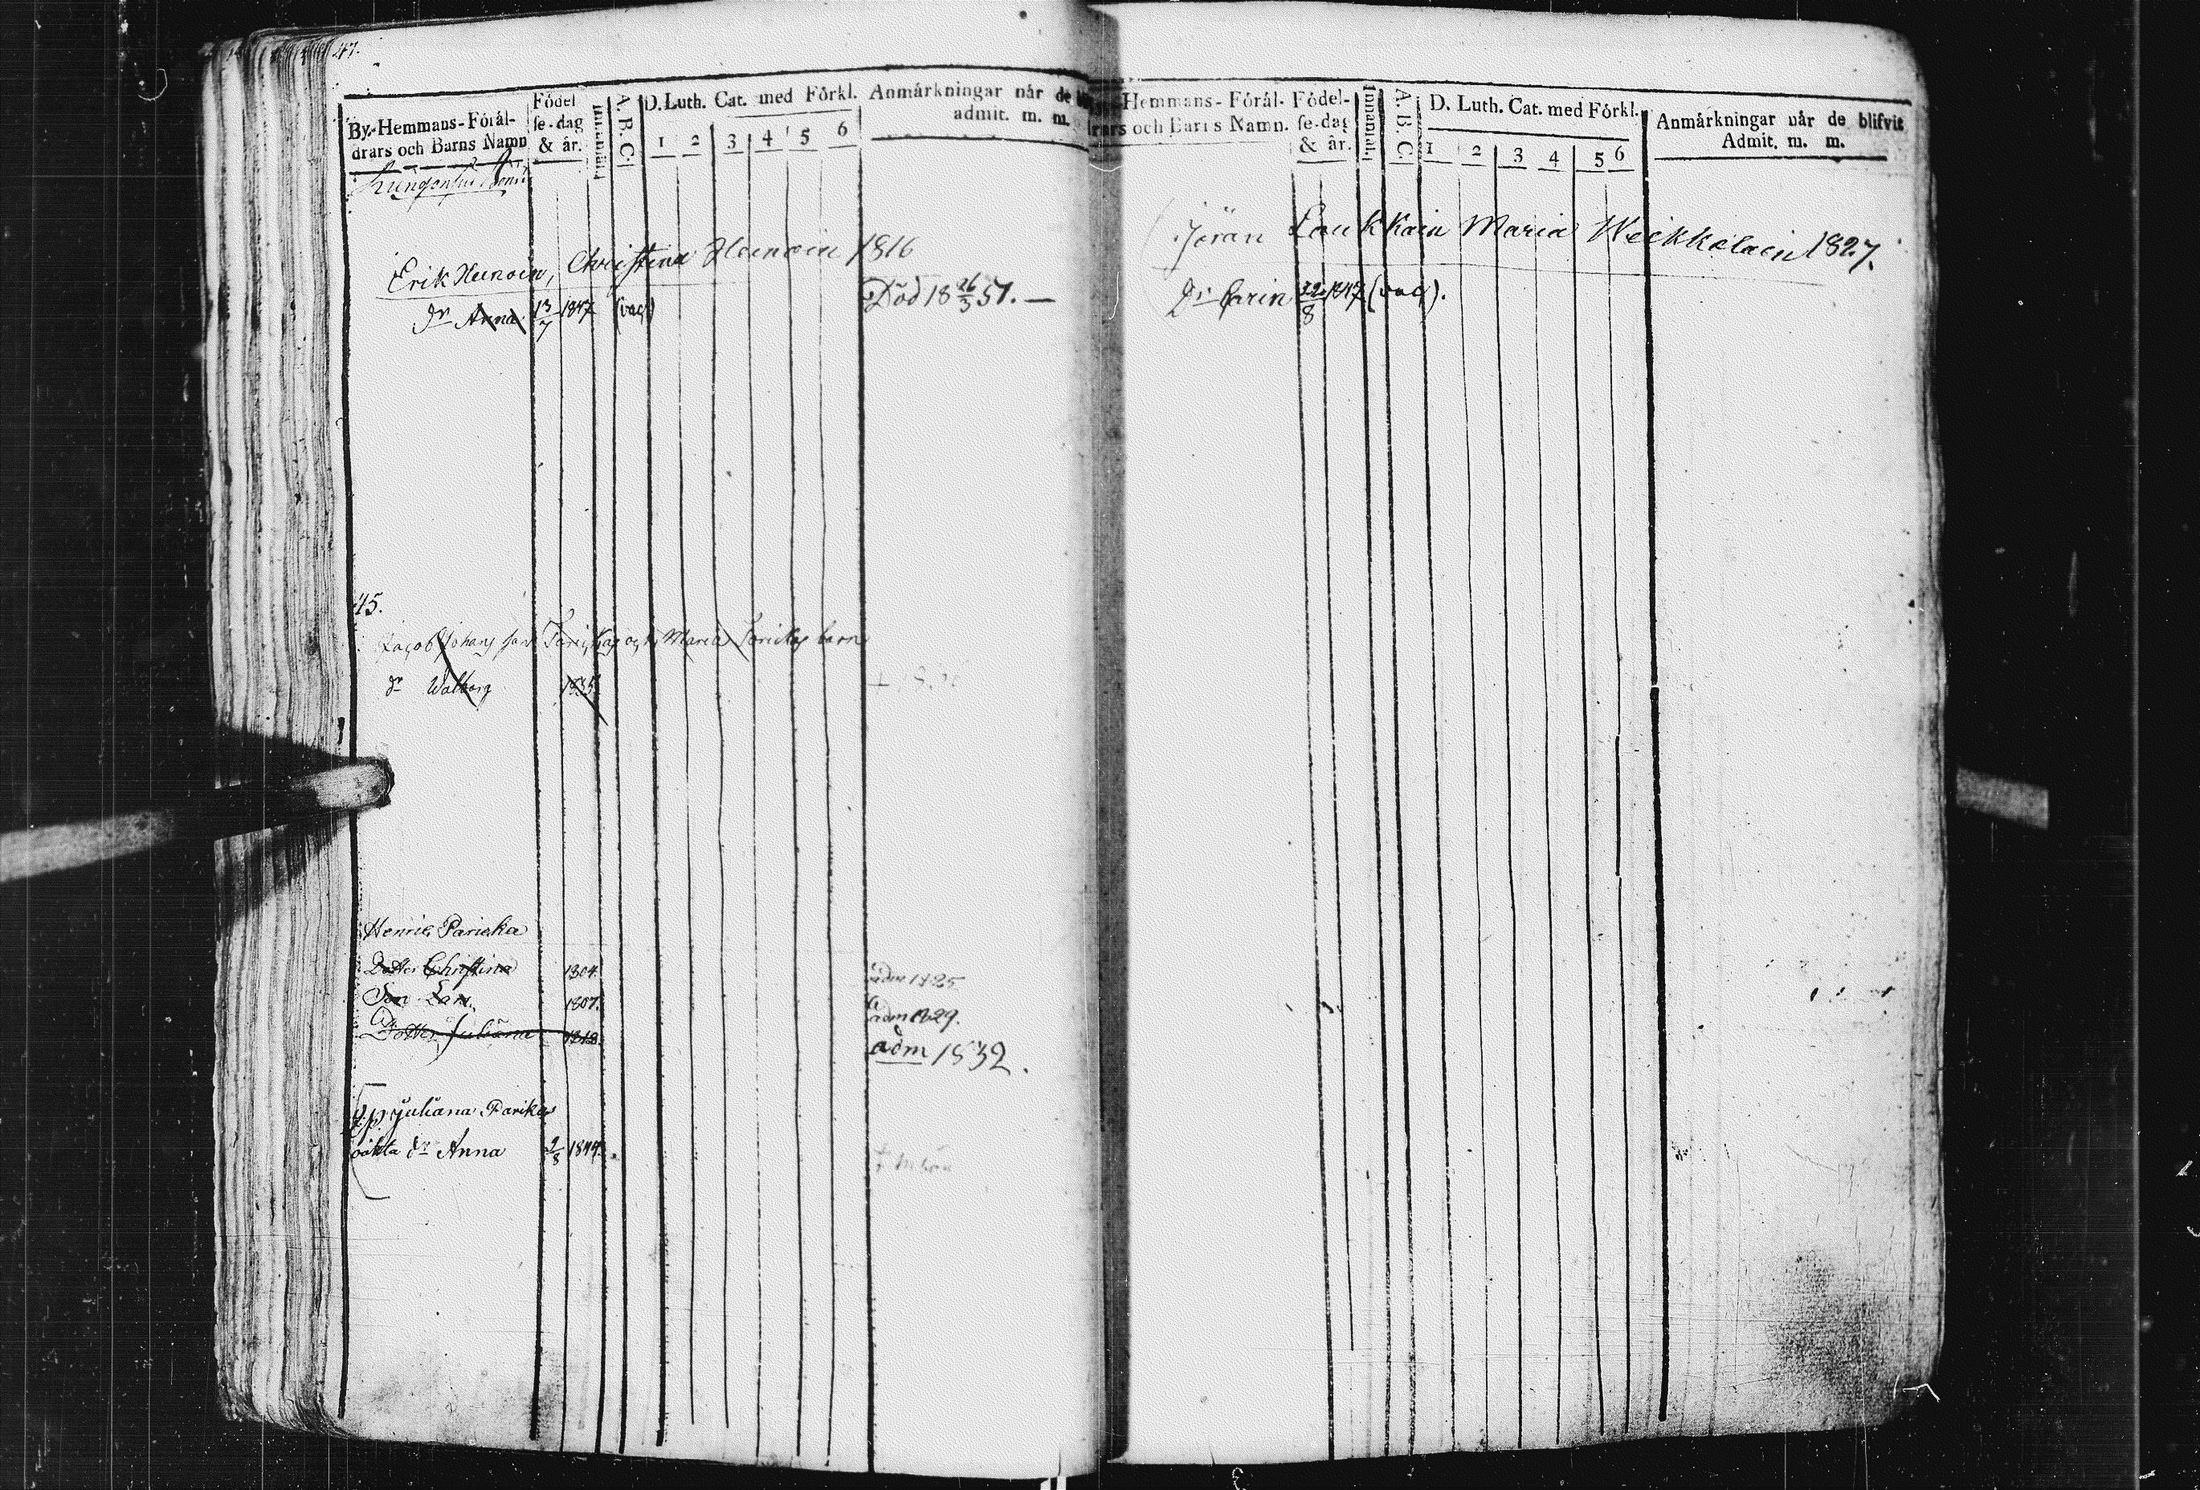 47.
By.-Hemmans-Förál-
drars och Barns Namn
Födel
se-dag
& år.
Innantil.
A. B. C.
D. Luth. Cat. med Förkl.
1 2 3 4 5 6
Anmärkningar når de
admit. m. m.
Erik Heinoin, Christina Heinoin 1816
dr Anna 13/7 1847 (vac)
Död 18 26/3 51. —
45.
Jacob Johans son Parickas och Maria Parickas barn
dr Walborg 1835
Henric Paricka
Dotter Christina 1804. adm 1825
Son Lars. 1807. adm 1829.
Dotter Juliana 1818 adm 1832.
Juliana Parikas
oäkta dr Anna 2/8 1844.
Hemmans- Förál-
drars och Barns Namn.
Födel-
se-dag
& år.
Innantil.
A. B. C.
D. Luth. Cat. med Förkl.
1 2 3 4 5 6
Anmärkningar når de blifvit
Admit, m. m.
Jöran Laukkain Maria Weikkolain 1827.
dr Carin 22/8 1847 (vac).